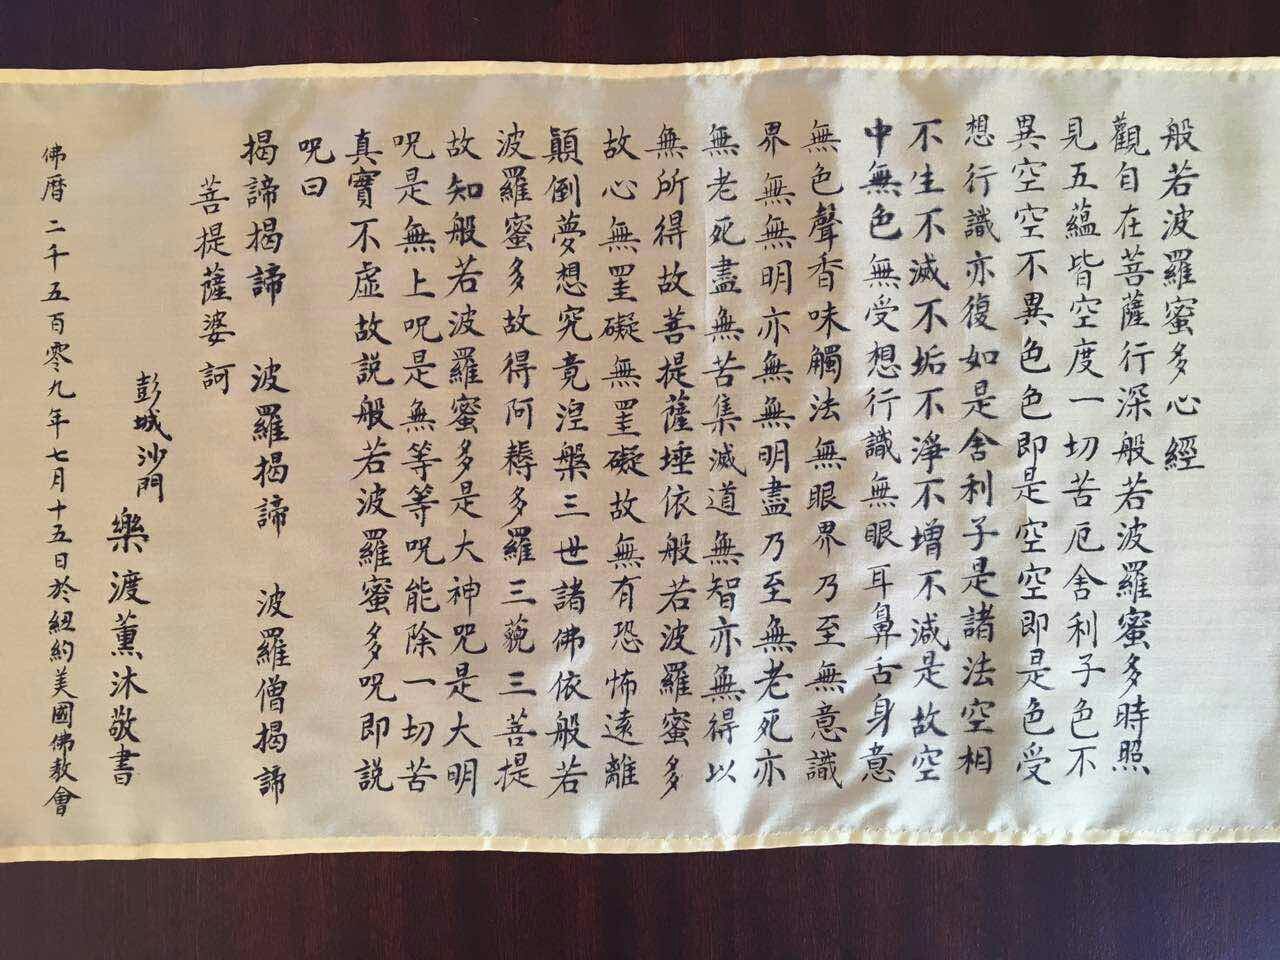 般若波羅蜜多心經
觀自在菩薩行深般若波羅蜜多時照
見五蘊皆空度一切苦厄舍利子色不
異空空不異色色即是空空即是色受
想行識亦復如是舍利子是諸法空相
不生不滅不垢不淨不增不減是故空
中無色無受想行識無眼耳鼻舌身意
無色聲香味觸法無眼界乃至無意識
界無無明亦無無明盡乃至無老死亦
無老死盡無苦集滅道無智亦無得以
無所得故菩提薩埵依般若波羅蜜多
故心無罣礙無罣礙故無有恐怖遠離
顛倒夢想究竟涅槃三世諸佛依般若
波羅蜜多故得阿耨多羅三藐三菩提
故知般若波羅蜜多是大神咒是大明
咒是無上咒是無等等咒能除一切苦
真實不虛故説般若波羅蜜多咒即説
咒曰
揭諦揭諦 波羅揭諦 波羅僧揭諦
菩提薩婆訶
彭城沙門 樂渡薰沐敬書
佛曆二千五百零九年七月十五日於紐約美國佛教會